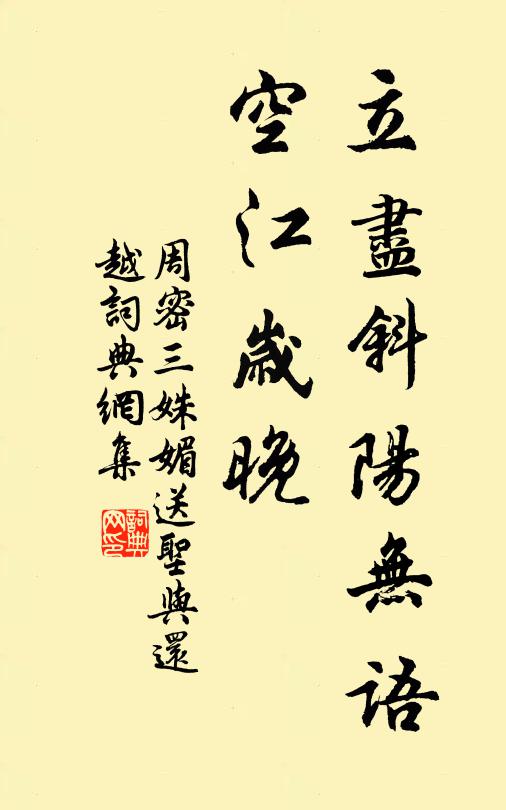 立盡斜陽無語
空江歲晚
周密三姝媚送聖與還
越詞典網集
詞典
网印